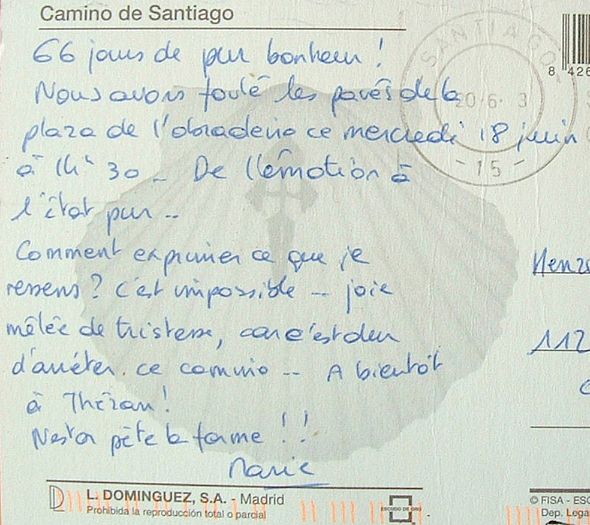 Camino de Santiago
66 jours de pur bonheur !
Nous avons foulé les pavés de la
plaza de l'obradeiro ce mercredi 18 juin
à 11h 30 _ De l'émotion à
l'état pur ..
Comment exprimer ce que je
ressens ? c'est impossible _ joie
mêlée de tristesse, car c'est dur
d'arrêter ce camino -- A bientôt
à Thézan !
Nestor pète la forme ! !
Marie
SANTIAGO
20·6· 3
- 15 -
8 426
112
L. DOMINGUEZ, S.A. - Madrid
Prohibida la reproducción total o parcial
ESCUDO DE ORO
© FISA - ESC
Dep. Lega